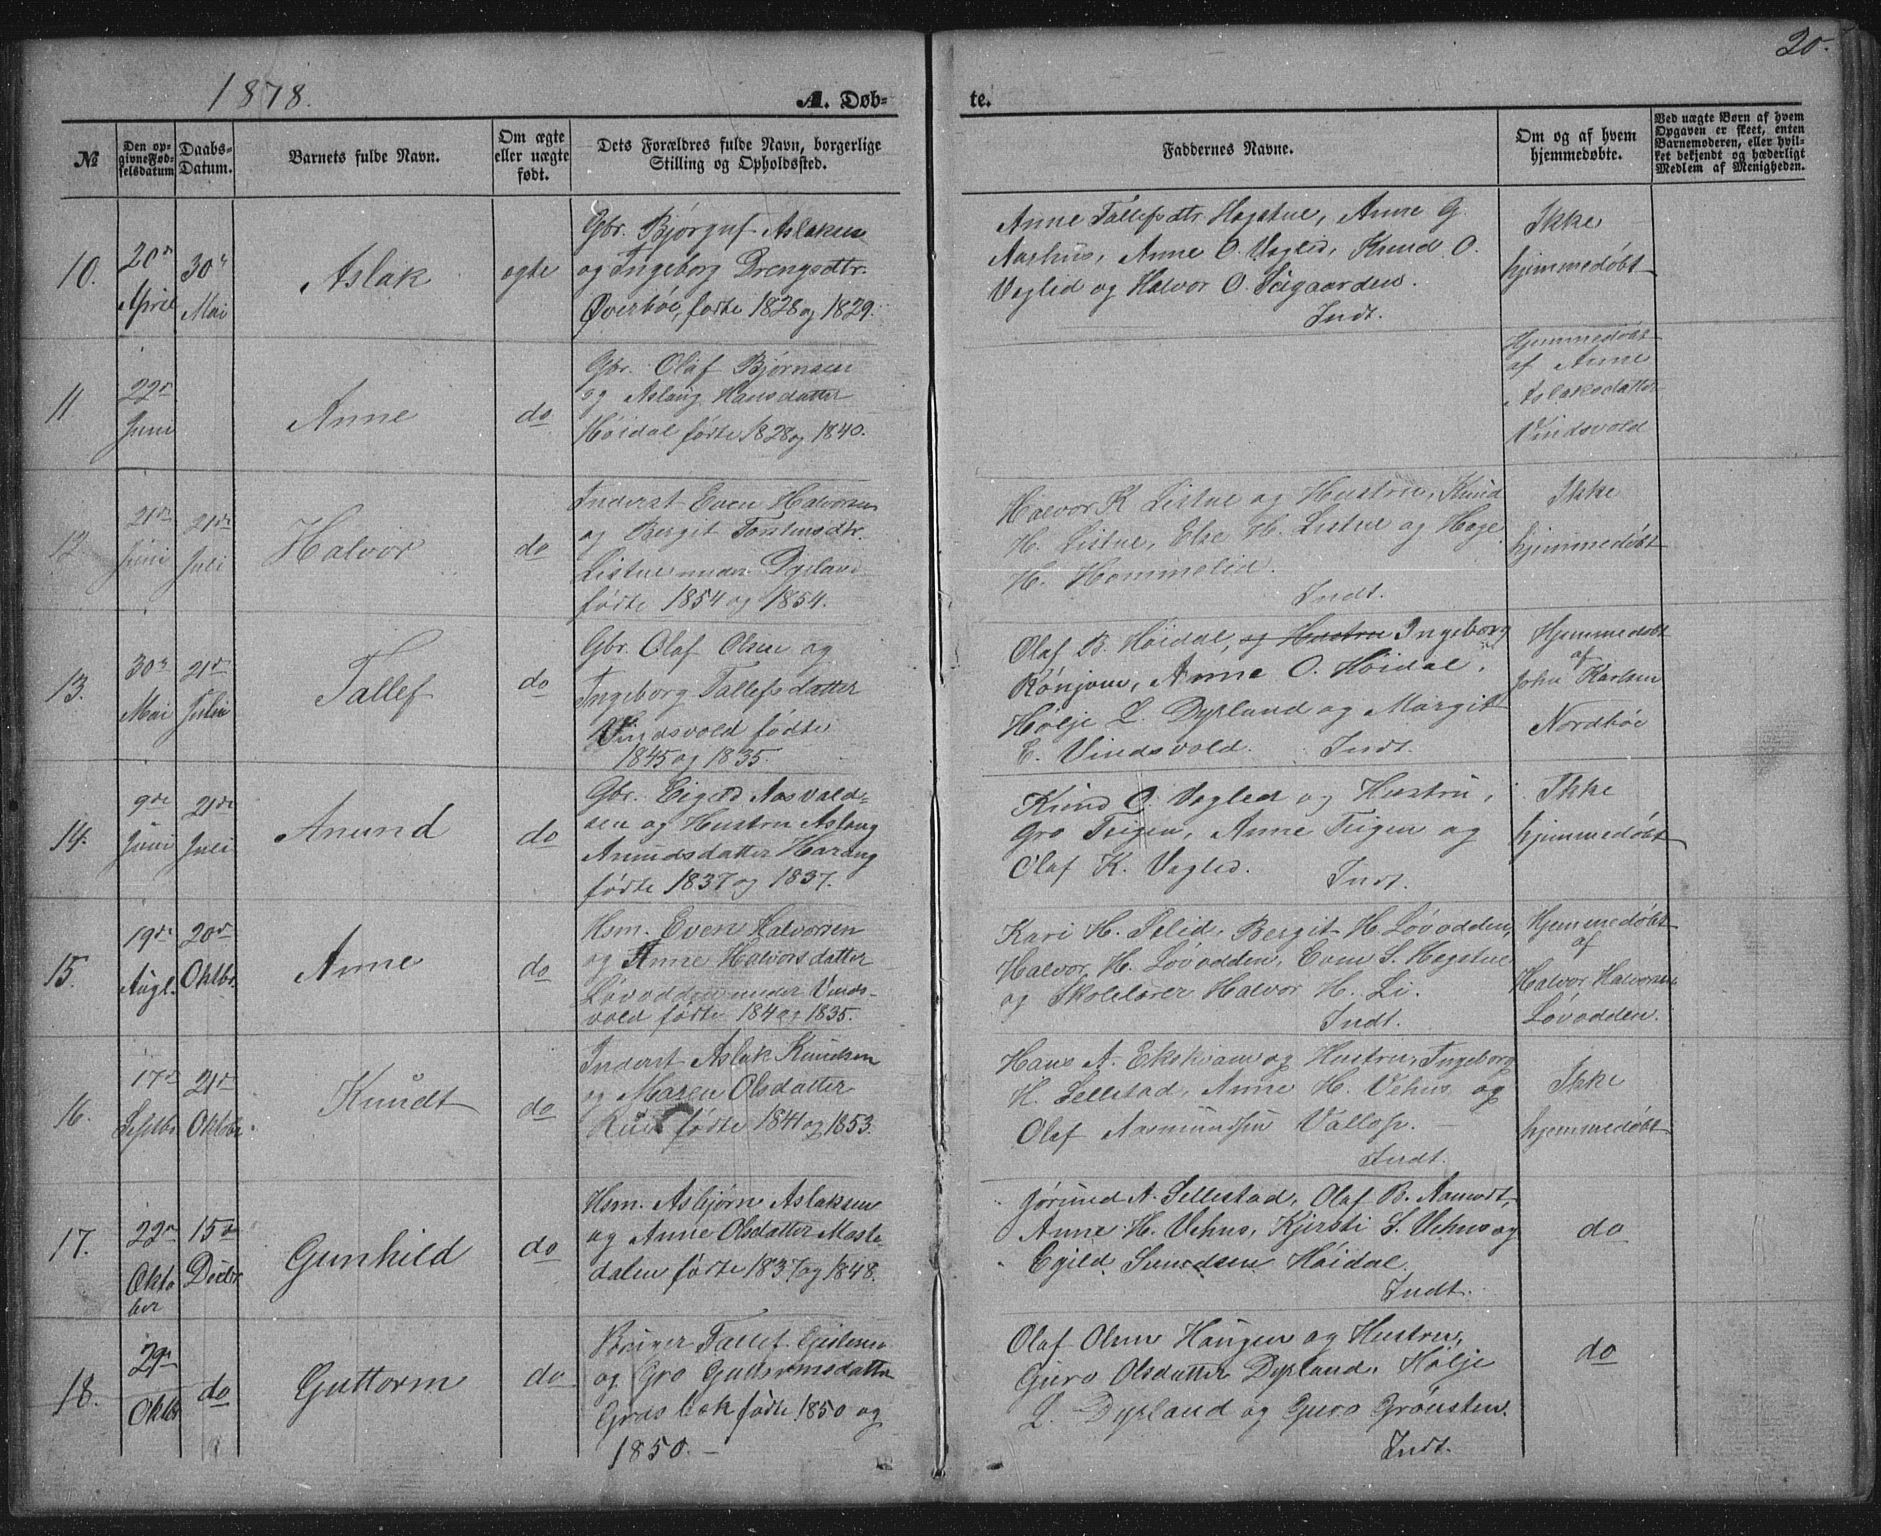 1878.
A. Døb-
te.
20.
№
Den op-
givne Fød-
selsdatum
Daabs-
Datum.
Barnets fulde Navn.
Om ægte
eller uægte
født.
Dets Forældres fulde Navn, borgerlige
Stilling og Opholdssted.
Faddernes Navne.
Om og af hvem
hjemmedøbte.
Ved uægte Børn af hvem
Opgaven er skeet, enten
Barnemoderen, eller hvil-
ket bekjendt og hæderligt
Medlem af Menigheden.
10.
20de
April
30te
Mai
Aslak
ægte
Gbr. Bjørguf Aslaksen
og Ingeborg Drengsdtr.
Øverbøe, fødte 1828 og 1829.
Anne Tallefsdtr. Hegstue, Anne G.
Aarhus, Anne O. Veglid, Knud O.
Veglid og Halvor O. Teigaarden.
Indt.
Ikke
hjemmedøbt
11.
22de
Juni
Anne
do
Gbr. Olaf Bjørnsen
og Aslaug Hansdatter
Høidal fødte 1828 og 1840.
Hjemmedøbt
af Anne
Aslaksdatter
Vindsvold
12.
21de
Juni
21de
Juli
Halvor
do
Inderst Even Halvorsen
og Bergit Torstensdtr.
Listue under Dyrland
fødte 1854 og 1854.
Halvor K. Listue og Hustru, Knud
H. Listue, Else H. Listue og Hege
H. Hommelid.
Indt.
Ikke
hjemmedøbt
13.
30te
Mai
21de
Juli
Tallef
do
Gbr. Olaf Olsen og
Ingeborg Tallefsdatter
Vindsvold fødte
1845 og 1835.
Olaf B. Høidal, og Hustru Ingeborg
Rønjom, Anne O. Høidal,
Hølje L. Dyrland og Margit
E. Vindsvold. Indt.
Hjemmedøbt
af
John Karlsen
Nordbøe
14.
9de
Juni
21de
Juli
Anund
do
Gbr. Eigild Aasvald-
sen og Hustru Aslaug
Anundsdatter Haraug
fødte 1837 og 1837.
Knud O. Veglid og Hustru,
Gro Teigen, Anne Teigen og
Olaf K. Veglid.
Indt.
Ikke
hjemmedøbt
15.
19de
Augt.
20de
Oktbr.
Anne
do
Hsm. Even Halvorsen
og Anne Halvorsdatter
Løvodden under Vinds-
vold fødte 184 og 1835.
Kari H. Felid, Bergit H. Løvodden,
Halvor H. Løvodden, Even S. Hegstue
og Skolelærer Halvor H. Li.
Indt.
Hjemmedøbt
af
Halvor Halvorsen
Løvodden.
16.
17de
Septbr.
21de
Oktbr.
Knudt
do
Inderst Aslak Knudsen
og Maren Olsdatter
fødte 1841 og 1853.
Hans A. og Hustru, Ingeborg
H. Sellestad, Anne H. Vehus og
Olaf Aasmundsen Vallop.
Indt.
Ikke
hjemmedøbt
17.
22de
Okto
ber
15de
Decbr.
Gunhild
do
Hsm. Asbjørn Aslaksen
og Anne Olsdatter Mosle-
dalen fødte 1837 og 1848.
Jørund A. Sellestad, Olaf B. Aamodt,
Anne H. Vehus, Kjersti S. Vehus og
Egild Sundsen Høidal.
Indt.
do
18.
29de
Oktbr
do
Guttorm
do
Tallef Geirsen
og Gro Guttormsdatter
fødte 1850 og
1850.
Olaf Olsen Haugen og Hustru,
Guro Olsdatter Dyrland, Hølje
L. Dyrland og Guro Grønsten.
Indt.
do